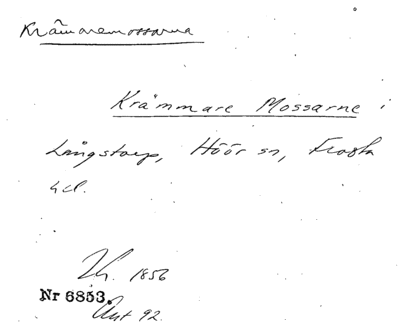 Krämaremossarna
Krämmare Mossarne i
Långstorp, Höör sn, Frosta
hd.
1856
Nr 6853.
Ant 92.